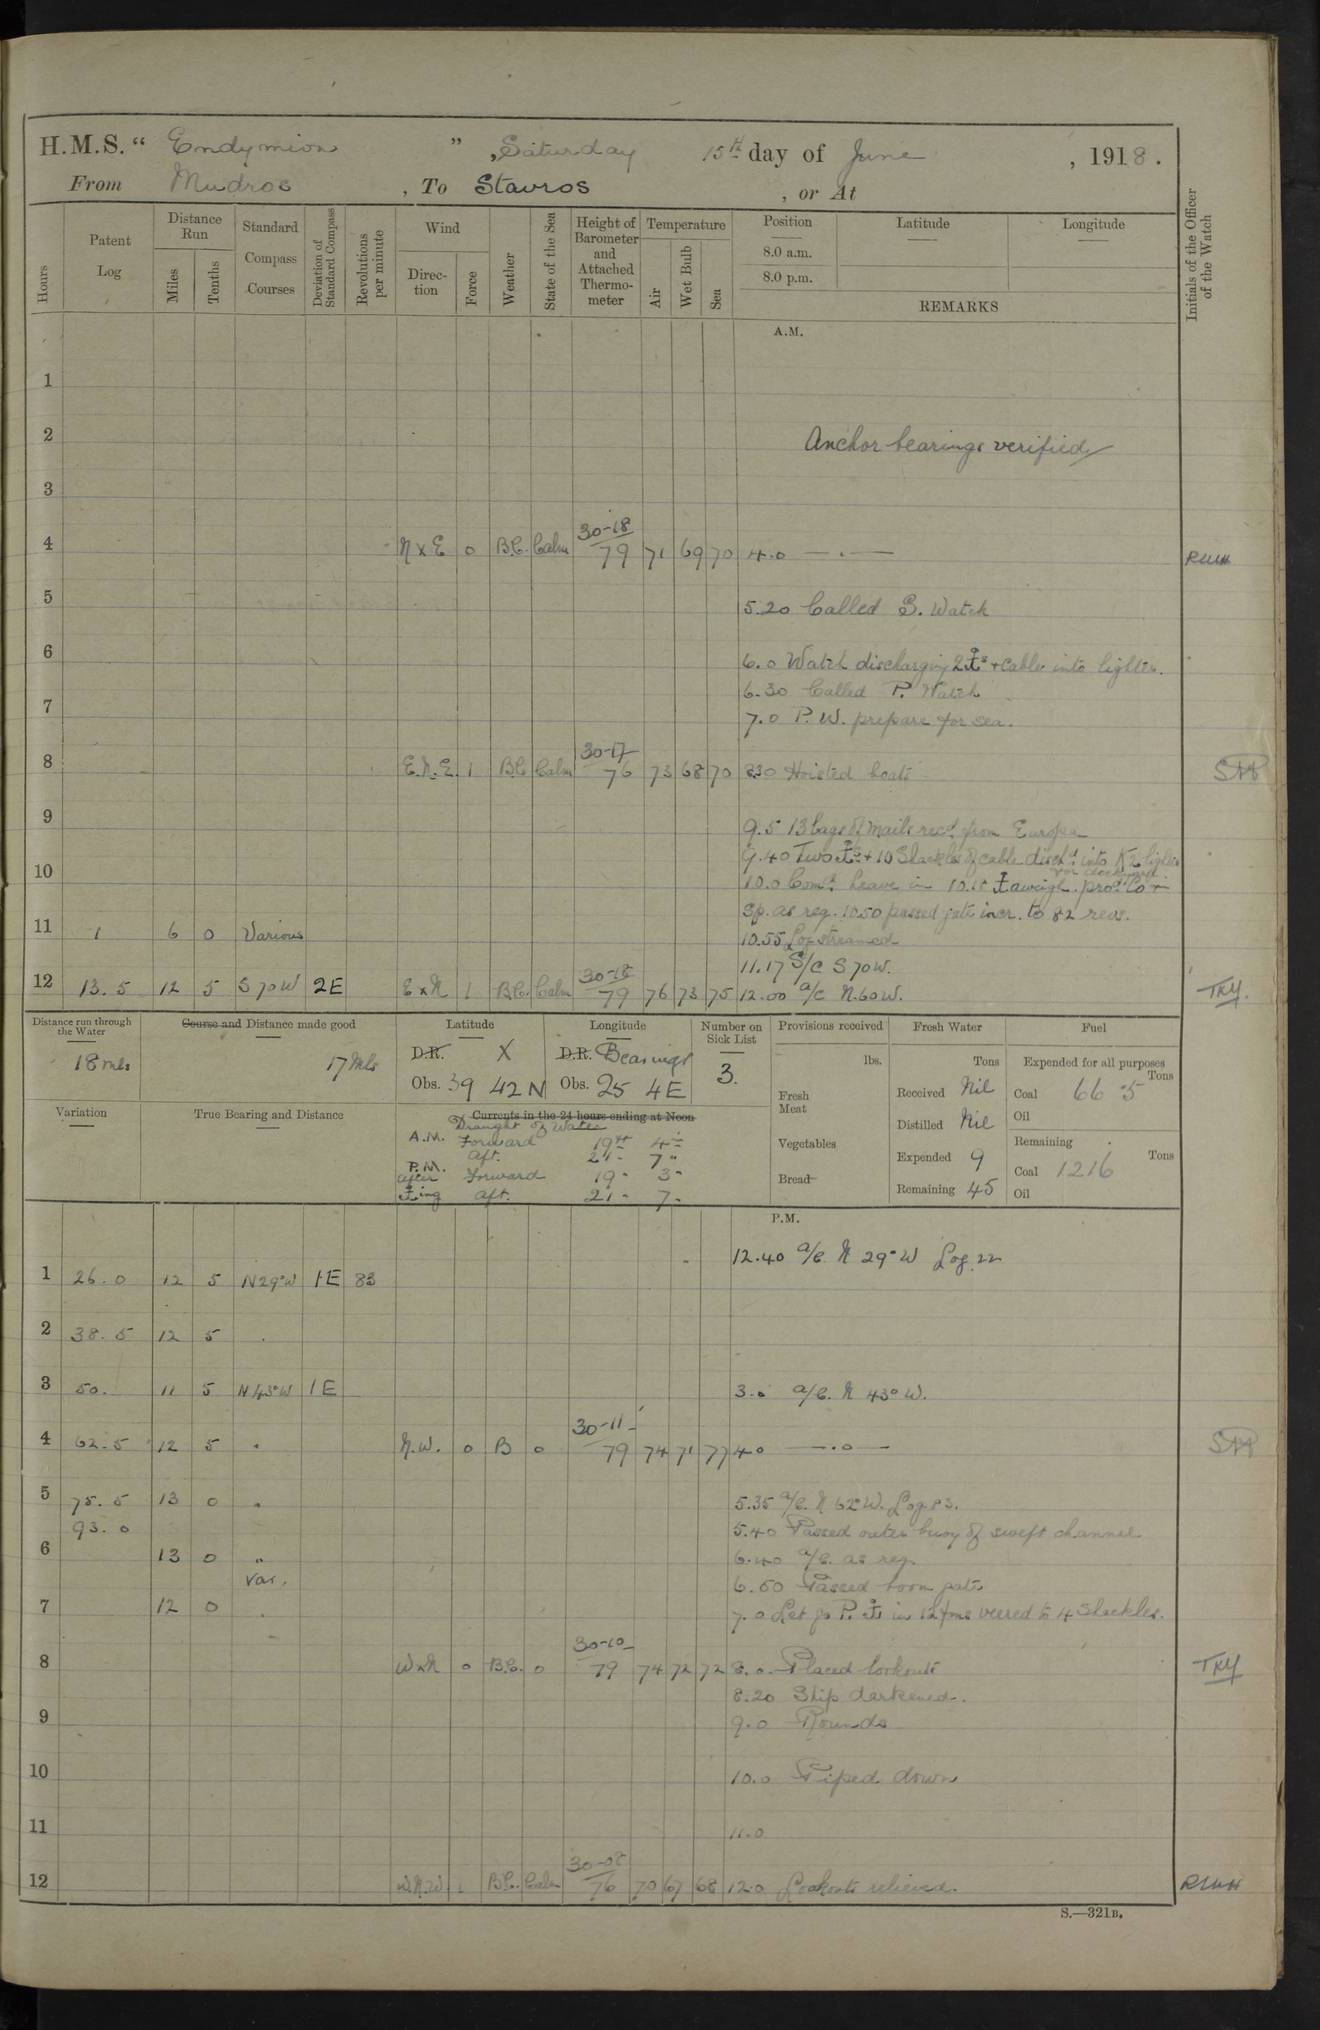 H.M.S. “ Endymion ” , Saturday 15th day of June , 1918 .
From Mudros , To Stavros , or At
Hours Patent Log Distance Run Miles Tenths Standard Compass Courses Deviation of Standard Compass Revolutions per minute Wind Direc- tion Force Weather State of the Sea Height of Barometer and Attached Thermo- meter Temperature Air Wet Bulb Sea Position 8.0 a.m. 8.0 p.m. Latitude Longitude
REMARKS
Initials of the Officer of the Watch
A.M.
1
2 Anchor bearings verified
3
30-18
4 N x E 0 B.C. Calm 79 71 69 70 4.0 — . —
5 5.20 Called S. Watch
6 6.0 Watch discharging 2 ⚓s + cable into lighter.
6.30 Called P. Watch
7 7.0 P.W. prepare for sea.
30-17
8 E.N.E. 1 BC Calm 76 73 68 70 830 Hoisted boats
9 9.5 13 bags of mails recd from Europa
9.40 Two ⚓s + 10 Shackles of cable disch'd into K2 lighter
for dockyard
10 10.0 Comd. heave in 10.15 ⚓ aweigh. proc. Co +
Sp. as req. 10.50 passed gate incr. to 82 revs.
11 1 6 0 Various 10.55 Log streamed
11.17 S/C S 70 W.
30-18
12 13.5 12 5 S 70 W 2E E x N 1 B.C. Calm 79 76 73 75 12.00 a/c N.60 W. TKY.
Distance run through the Water
18 mls
Course and Distance made good
17 Mls
Latitude
D.R. X
Obs. 39 42 N
Longitude
D.R. Bearings
Obs. 25 4 E
Number on Sick List
3.
Provisions received
lbs.
Fresh Meat
Vegetables
Bread
Fresh Water
Tons
Received Nil
Distilled Nil
Expended 9
Remaining 45
Fuel
Expended for all purposes
Tons
Coal 66.5
Oil
Remaining
Tons
Coal 1216
Oil
Variation
True Bearing and Distance
Currents in the 24 hours ending at Noon
Draught of Water
A.M. Forward 19ft 4"
aft. 21- 7"
P.M.
after Forward 19- 3"
⚓ing aft. 21- 7-
P.M.
12.40 a/c. N 29°W Log 22
1 26.0 12 5 N29°W 1E 83
2 38.5 12 5 .
3 50. 11 5 N 43°W 1E 3.0 a/c. N 43° W.
30-11
4 62.5 12 5 " N.W. 0 B 0 79 74 71 77 4.0 — . 0 —
5 75.5 13 0 " 5.35 a/c. N 62°W. Log 83.
93.0 5.40 Passed outer buoy of swept channel
6 13 0 " 6.40 a/c. as req.
Var. 6.50 Passed boom gate
7 12 0 . 7.0 Let go P. ⚓ in 12 fms veered to 4 Shackles.
30-10
8 W x N 0 B.C. 0 79 74 72 72 8.0. Placed lookouts TKY
8.20 Ship darkened.
9 9.0 Rounds
10 10.0 Piped down
11 11.0
30-08
12 W.N.W. 1 B.C. Calm 76 70 67 68 12.0 Lookouts relieved.
S.—321B.